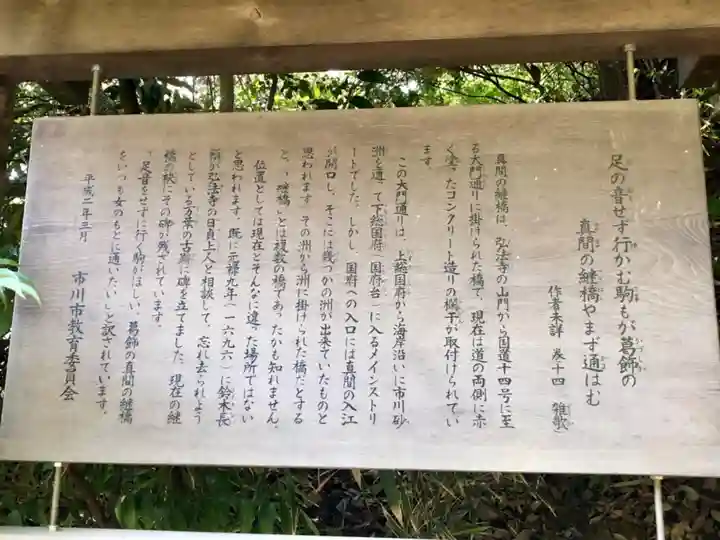 足の音せず行かむ駒もが葛飾の
真間の継橋やまず通はむ
作者未詳 巻十四 雑歌
真間の継橋は、弘法寺の山門から国道十四号に至
る大門通りに掛けられた橋で、現在は道の両側に赤
く塗ったコンクリート造りの欄干が取付けられてい
ます。
この大門通りは、上総国府から海岸沿いに市川砂
洲を通って下総国府(国府台)に入るメインストリ
ートでした。しかし、国府への入口には真間の入江
が開口し、そこには幾つかの洲が出来ていたものと
思われます。その洲から洲に掛けられた橋だとする
と、「継橋」とは複数の橋であったかも知れません。
位置としては現在とそんなに違った場所ではない
と思われます。既に元禄九年(一六九六)に鈴木長
頼が弘法寺の日貞上人と相談して、忘れ去られよう
としている万葉の古跡に碑を立てました。現在の継
橋の袂にその碑が残されています。
「足音をせずに行く駒がほしい、葛飾の真間の継橋
をいつも女のもとに通いたい」と訳されています。
平成二年三月
市川市教育委員会